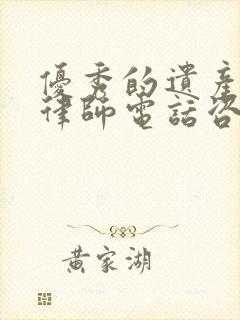 優秀的遺產
律師電話咨
黃家湖